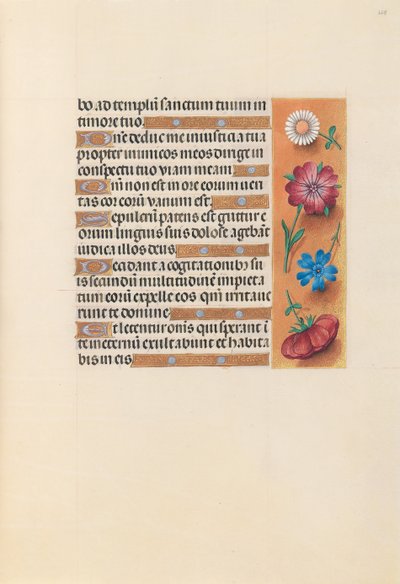 bo ad templū sanctum tuum in
timore tuo.
Dn̄e deduc me in iusticia tua
propter inimicos meos dirige in
conspectu tuo viam meam
Qm̄ non est in ore eorum veri
tas cor eorū vanum est
Sepulcrū patens est guttur e
orum linguis suis dolose agebāt
iudica illos deus
Decidant a cogitationibꝰ su
is scd̄m multitudinē impieta
tum eorū expelle eos qm̄ irritaue
runt te domine
Et letentur om̄s qui sperant ī
te in eternū exultabunt et habita
bis in eis